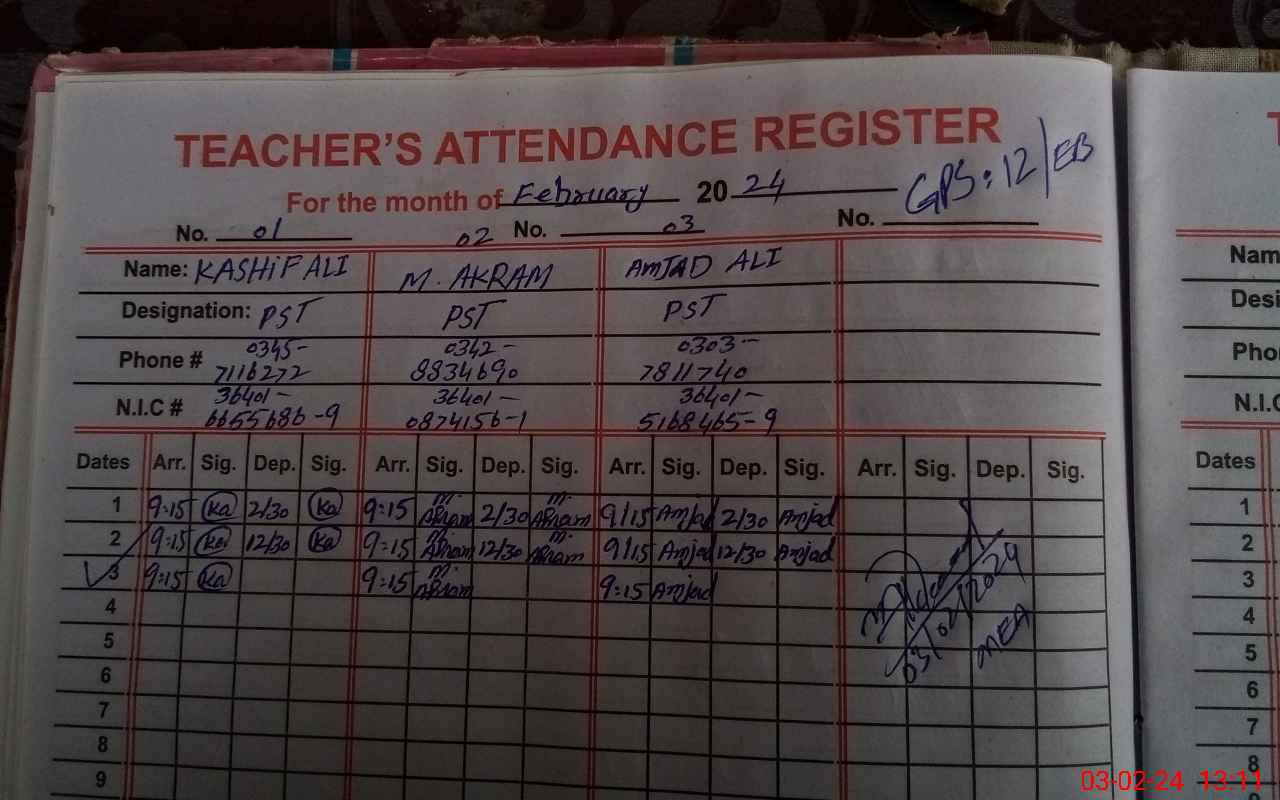 TEACHER'S ATTENDANCE REGISTER
GPS: 12/EB
For the month of February 20 24
No. 01 02 No. 03 No.
Name: KASHIF ALI M. AKRAM AMJAD ALI
Designation: PST PST PST
Phone # 0345- 0342- 0303-
7116272 8834690 7811740
N.I.C # 36401- 36401- 36401-
6655686-9 0874156-1 5168465-9
Dates Arr. Sig. Dep. Sig. Arr. Sig. Dep. Sig. Arr. Sig. Dep. Sig. Arr. Sig. Dep. Sig.
1 9:15 Ka 2/30 Ka 9:15 M. Akram 2/30 M. Akram 9/15 Amjad 2/30 Amjad
2 9:15 Ka 12/30 Ka 9:15 M. Akram 12/30 M. Akram 9/15 Amjad 12/30 Amjad
3 9:15 Ka 9:15 M. Akram 9:15 Amjad
03/02/2024
MEA
4
5
6
7
8
9
T
Nam
Desi
Pho
N.I.C
Dates
1
2
3
4
5
6
7
8
9
03-02-24 13:11